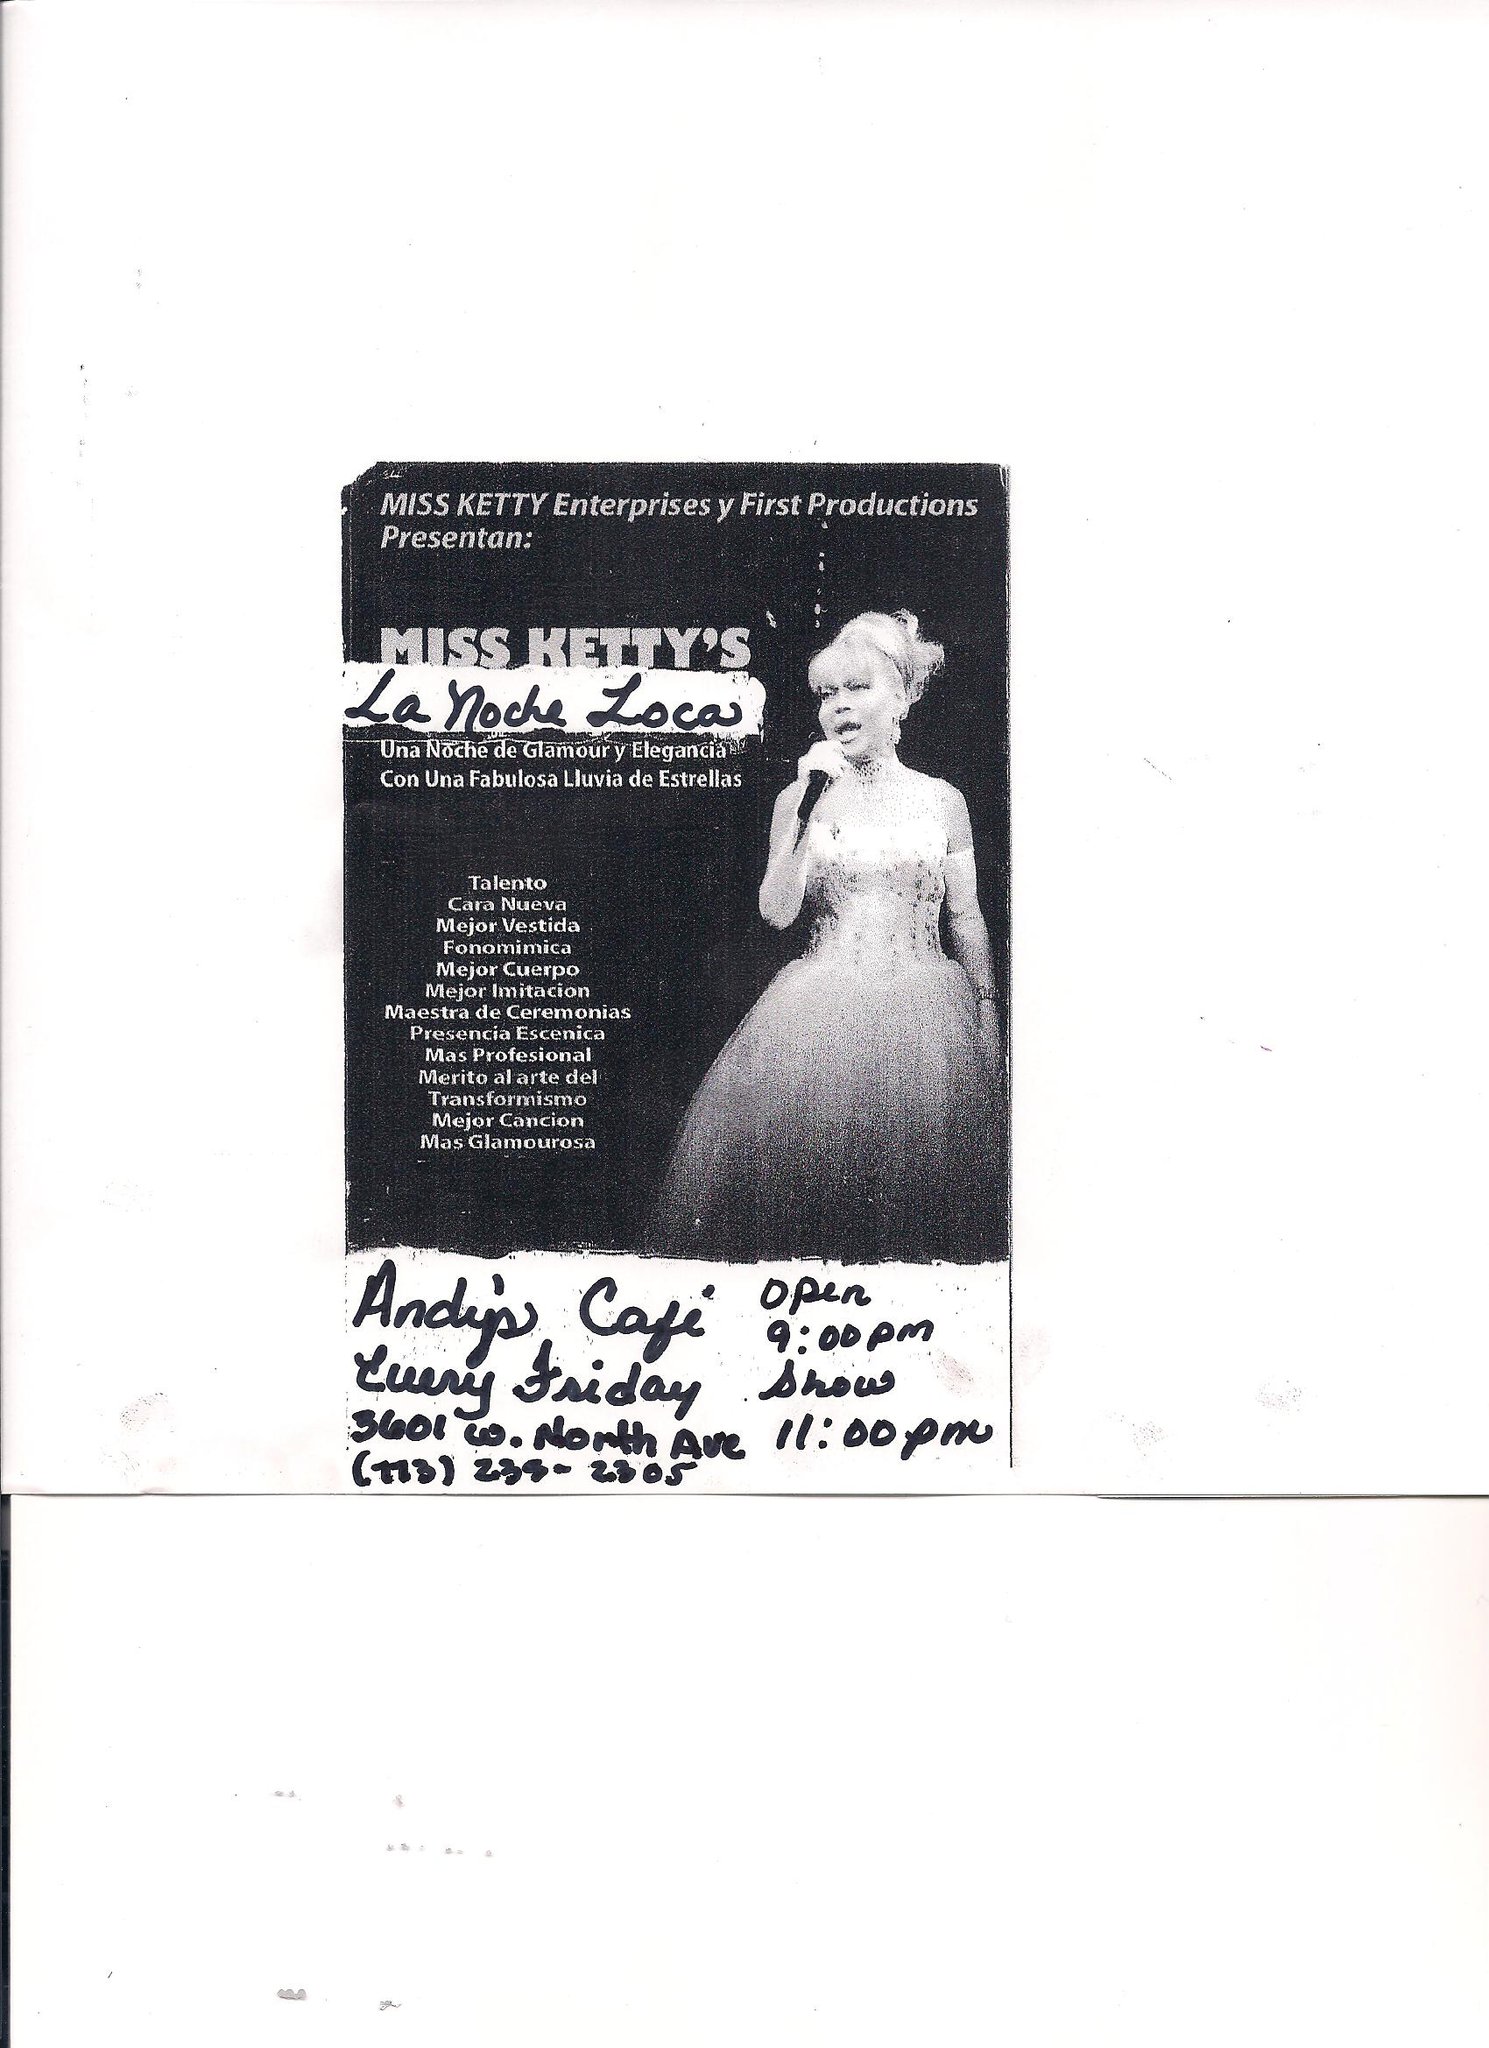 MISS KETTY Enterprises y First Productions
Presentan:
MISS KETTY'S
La Noche Loca
Una Noche de Glamour y Elegancia
Con Una Fabulosa Lluvia de Estrellas
Talento
Cara Nueva
Mejor Vestida
Fonomimica
Mejor Cuerpo
Mejor Imitacion
Maestra de Ceremonias
Presencia Escenica
Mas Profesional
Merito al arte del
Transformismo
Mejor Cancion
Mas Glamourosa
Andy's Café
Every Friday
3601 W. North Ave
(773) 235-2305
Open
9:00pm
Show
11:00pm